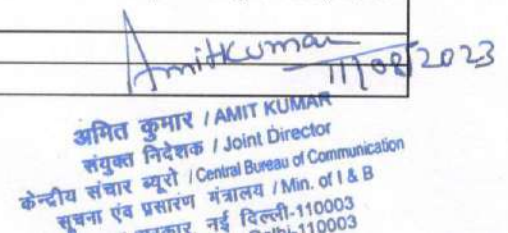 Amitkumar
11/08/2023
अमित कुमार / AMIT KUMAR
संयुक्त निदेशक / Joint Director
केन्द्रीय संचार ब्यूरो / Central Bureau of Communication
सूचना एवं प्रसारण मंत्रालय / Min. of I & B
सरकार, नई दिल्ली-110003
Delhi-110003